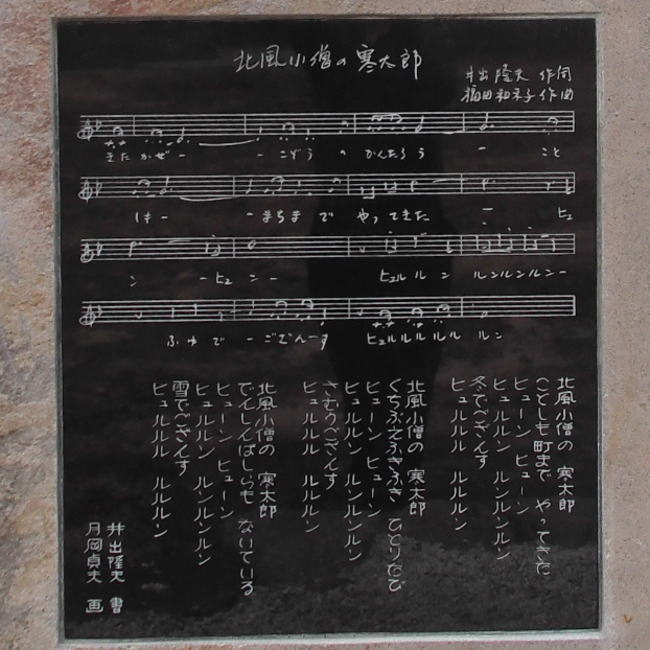 北風小僧の寒太郎
井出隆夫 作詞
福田和禾子 作曲
きたかぜー ーこぞう の かんたろう ー こと
しもー ーまちまで やってきた ー ヒュ
ン ーヒュンー ヒュルルン ルンルンルンー
ふゆでーござんーす ヒュルルルルル ルン
北風小僧の 寒太郎
ことしも町まで やってきた
ヒューン ヒューン
ヒュルルン ルンルンルン
冬でござんす
ヒュルルル ルルルン
北風小僧の 寒太郎
くちぶえふきふき ひとりたび
ヒューン ヒューン
ヒュルルン ルンルンルン
さむうござんす
ヒュルルル ルルルン
北風小僧の 寒太郎
でんしんばしらも ないている
ヒューン ヒューン
ヒュルルン ルンルンルン
雪でござんす
ヒュルルル ルルルン
井出隆夫 書
月岡貞夫 画